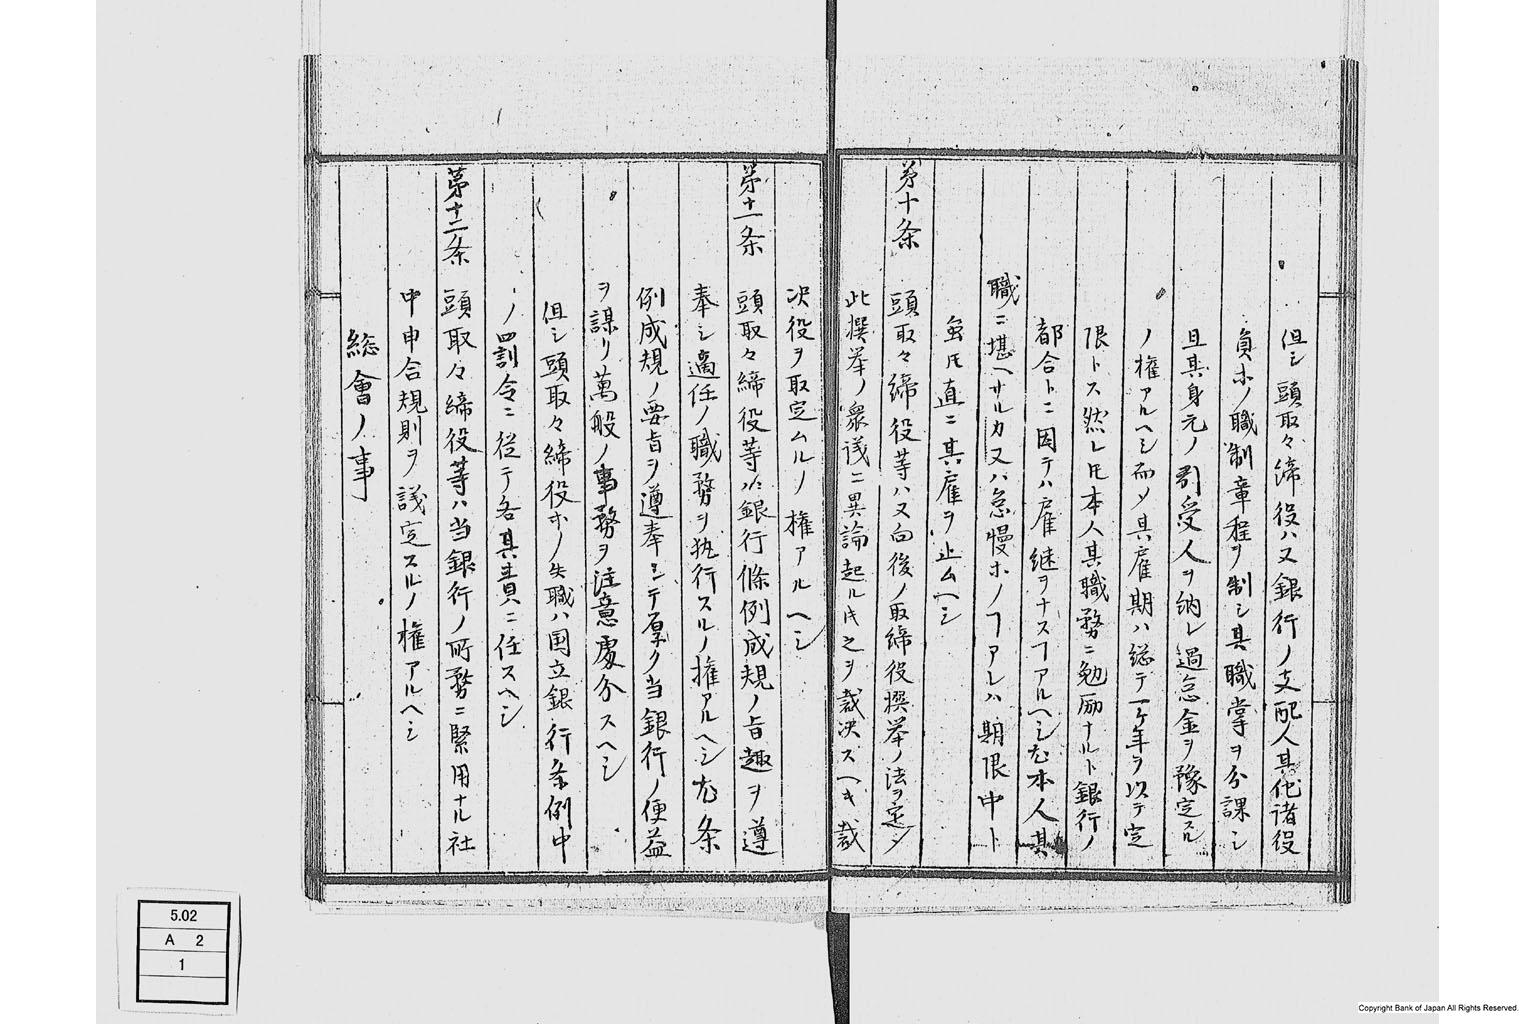 但シ頭取々締役ハ又銀行ノ支配人其他諸役
員ホノ職制章程ヲ制シ其職掌ヲ分課シ
且其身元ノ引受人ヲ納レ過怠金ヲ豫定スル
ノ権アルヘシ而〆其雇期ハ総テ一ケ年ヲ以テ定
限トス然レ𪜈本人其職務ニ勉励ナルト銀行ノ
都合トニ因テハ雇継ヲナスヿアルヘシ尤本人其
職ニ堪ヘサルカ又ハ怠慢ホノヿアレハ期限中ト
虽𪜈直ニ其雇ヲ止ムヘシ
第十条 頭取々締役等ハ又向後ノ取締役撰挙ノ法ヲ定メ
此撰挙ノ衆議ニ異論起ル𬼀之ヲ裁決スヘキ裁
決役ヲ取定ムルノ権アルヘシ
第十一条 頭取々締役等ハ銀行條例成規ノ旨趣ヲ遵
奉シ適任ノ職務ヲ執行スルノ権アルヘシ尤条
例成規ノ要旨ヲ遵奉シテ厚ク当銀行ノ便益
ヲ謀リ萬般ノ事務ヲ注意處分スヘシ
但シ頭取々締役ホノ失職ハ国立銀行条例中
ノ罰令ニ従テ各其責ニ任スヘシ
第十二条 頭取々締役等ハ当銀行ノ所務ニ緊用ナル社
中申合規則ヲ議定スルノ権アルヘシ
総會ノ事
5.02
A 2
1
Copyright Bank of Japan All Rights Reserved.